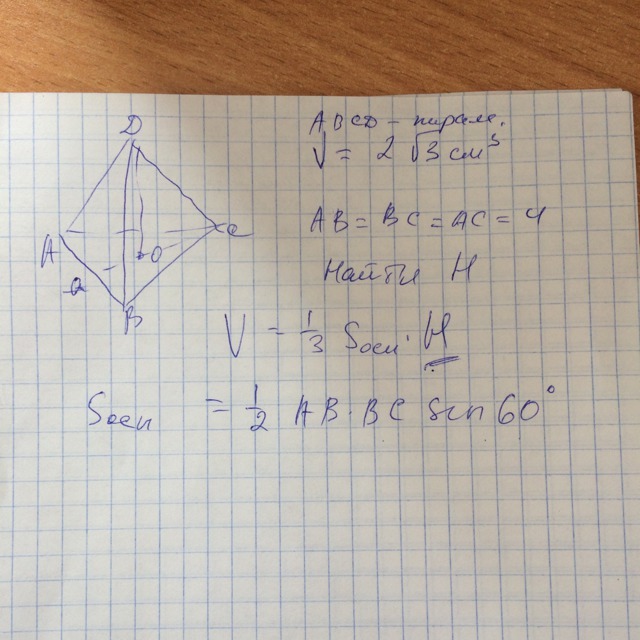 D
ABCD - пирам.
V = 2 √3 см³
A
C
O
a
B
AB = BC = AC = 4
Найти H
V = 1/3 Sосн · H
Sосн = 1/2 AB · BC sin 60°